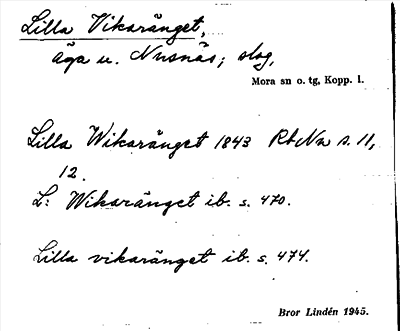 Lilla Vikaränget,
äga u. Nusnäs; slog,
Mora sn o. tg, Kopp. l.
Lilla Wikaränget 1843 RbNn s. 11,
12.
L: Wikaränget ib. s. 470.
Lilla vikaränget ib. s. 474.
Bror Lindén 1945.